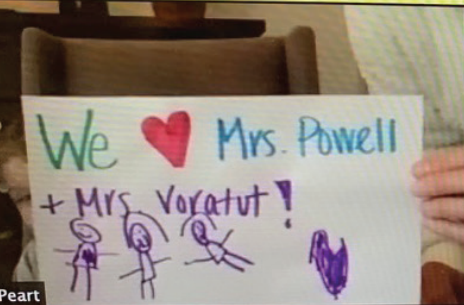 We ♥ Mrs. Powell
+ Mrs. Voratut!
Peart